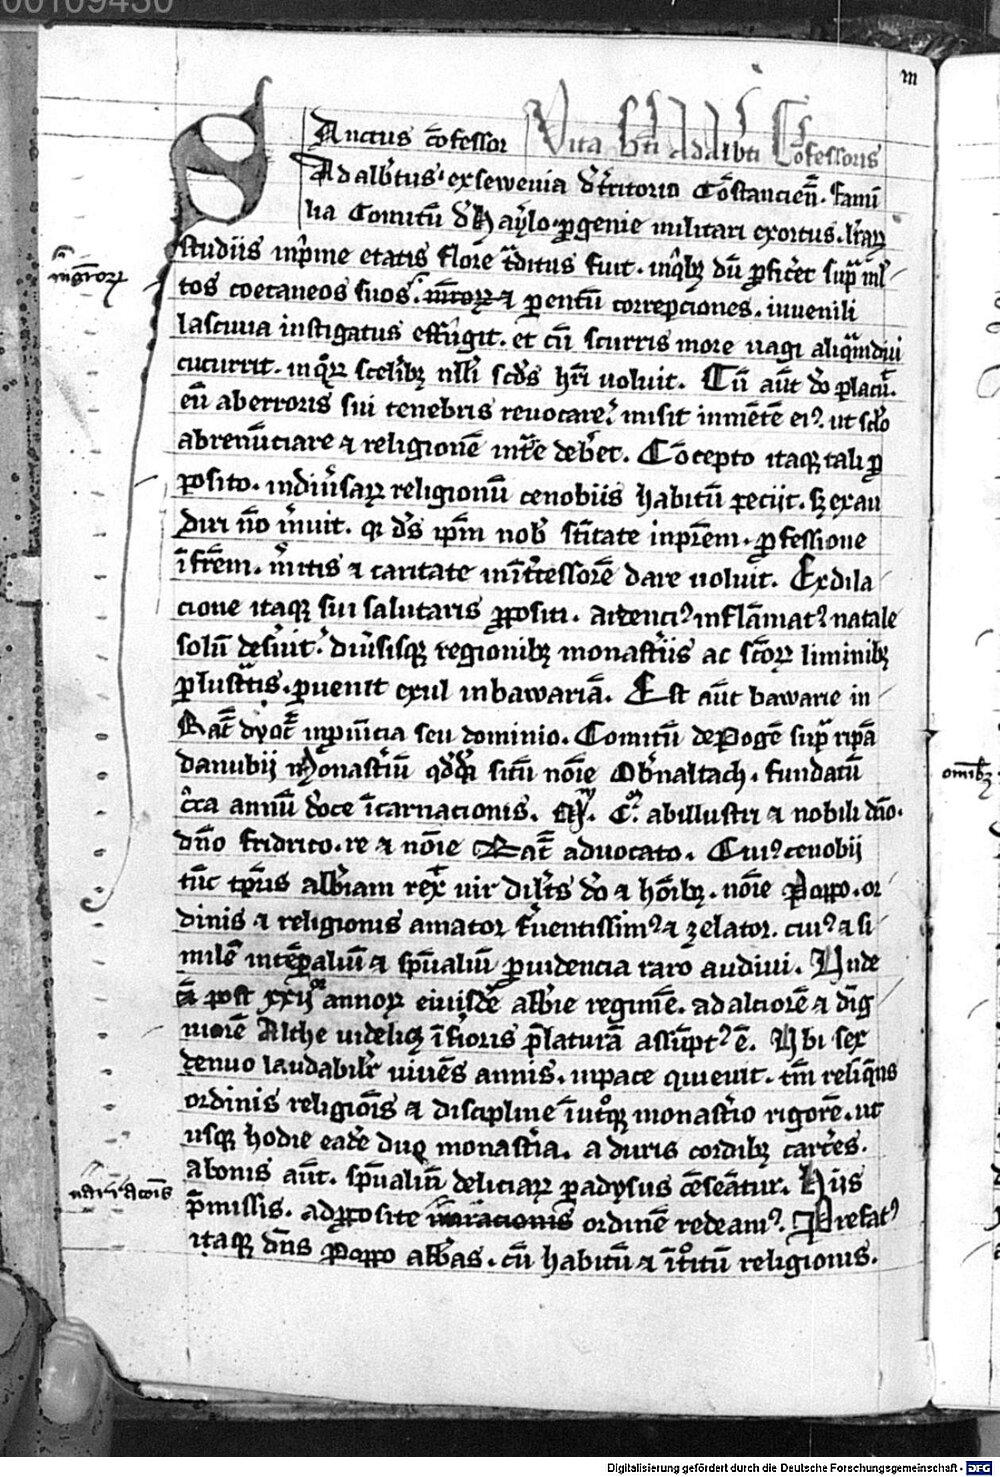 00109430
m
Vita bti Adalbti Cōfessoris
Sanctus cōfessor
Adalbtus. ex sewenia dt̄ritorio Cōstancien̄. fami
lia Comitū d' Haylo. pgenie militari exortus. lrarꝝ
studiis inpime etatis flore traditus fuit. in qbꝫ dū pficet supra ml
tos coetaneos suos. mroꝝ ⁊ pentū correpciones. iuuenili
mgroꝝ
lasciuia instigatus effugit. et cū scurris more uagi aliqmdiu
cucurrit. in qꝝ scelibꝫ nllī scds hri uoluit. Cū aūt do placuit.
eū aberroris sui tenebris reuocare. misit in mētē eiꝰ. ut sclo
abrenūciare ⁊ religionē int͛re deberet. Cōcepto itaqꝫ tali p
posito. in diuſaꝝ religionū cenobiis habitū reciit. sꝫ exau
diri nō muit. qr ds ipm nob' sctitate in prem. pfessione
ī frem. mitis ⁊ caritate int͛cessorē dare uoluit. Ex dila
cione itaqꝫ sui salutaris ppositi. ardenciꝰ inflāmatꝰ natale
solū deſuit. diuſisqꝫ regionibꝫ monastiis ac scōꝝ liminibꝫ
plustratis. puenit exul in bawariā. Est aūt bawarie in
Rat dyoc in puīcia seu dominio. Comitū de Pogē sup ripā
danubij monastiū qddā sitū noīe Obnaltach. fundatū
omībꝫ
circa annū dōce īcarnacionis. M. C. ab illustri ⁊ nobili dno.
dno fridrico. re ⁊ noīe Rat aduocato. Cuiꝰ cenobij
tūc tpris abbiam rex̄ uir dilcts do ⁊ hoībꝫ. noīe Poppo. or
dinis ⁊ religionis amator fuentissimꝰ ⁊ zelator. cuiꝰ a si
milē in tēpaliū ⁊ spualiū puidencia raro audiui. Unde
ā post xxij annoꝝ eiusdē abbie regimē. ad alciorē ⁊ dig
niorē Alche uidelicꝫ īferioris placturā assūptꝰ ē. Ubi sex
denuo laudabilr uiuēs annis. in pace quieuit. tm̄ reliqns
ordinis religiōis ⁊ discipline ī utqꝫ monastio rigorē. ut
usqꝫ hodie eadē duo monastia. a duris cordibꝫ carcēs.
a bonis aūt. spualiū deliciaꝝ padysus cēseātur. Hiis
narracōis
pmissis. ad pposite narracionis ordinē redeamꝰ. Prefatꝰ
itaqꝫ dns Poppo abbas. cū habitū ⁊ īt͛itū religionis.
Digitalisierung gefördert durch die Deutsche Forschungsgemeinschaft - DFG